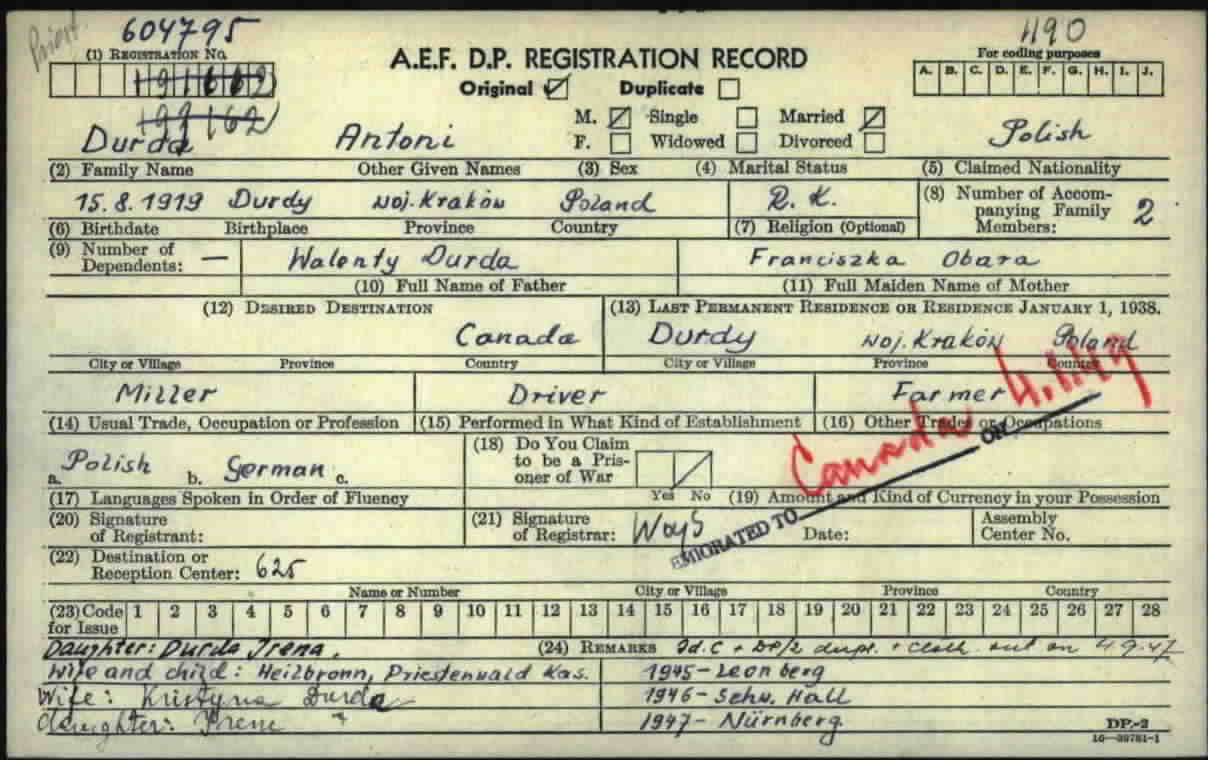 604795 490
(1) REGISTRATION NO. A.E.F. D.P. REGISTRATION RECORD For coding purposes
Original Duplicate A. B. C. D. E. F. G. H. I. J.
M. Single Married
Durda Antoni F. Widowed Divorced Polish
(2) Family Name Other Given Names (3) Sex (4) Marital Status (5) Claimed Nationality
15.8.1919 Durdy woj. Kraków Poland R. K. (8) Number of Accompanying Family Members: 2
(6) Birthdate Birthplace Province Country (7) Religion (Optional)
(9) Number of Dependents: — Walenty Durda Franciszka Obara
(10) Full Name of Father (11) Full Maiden Name of Mother
(12) DESIRED DESTINATION (13) LAST PERMANENT RESIDENCE OR RESIDENCE JANUARY 1, 1938.
Canada Durdy woj. Kraków Poland
City or Village Province Country City or Village Province Country
Miller Driver Farmer
(14) Usual Trade, Occupation or Profession (15) Performed in What Kind of Establishment (16) Other Trades or Occupations
EMIGRATED TO Canada ON 4.1.49
a. Polish b. German c. (18) Do You Claim to be a Prisoner of War
(17) Languages Spoken in Order of Fluency Yes No (19) Amount and Kind of Currency in your Possession
(20) Signature of Registrant: (21) Signature of Registrar: Date: Assembly Center No.
(22) Destination or Reception Center: 625
Name or Number City or Village Province Country
(23) Code for Issue 1 2 3 4 5 6 7 8 9 10 11 12 13 14 15 16 17 18 19 20 21 22 23 24 25 26 27 28
Daughter: Durda Irena. (24) REMARKS Id. C + DP/2 dupl. + cloth. out on 4 9.47
Wife and child: Heilbronn, Priestenwald Kas. 1945 - Leonberg
Wife: Kristyna Durda 1946 - Schw. Hall
daughter: Irena " 1947 - Nürnberg.
DP-2
16-39781-1